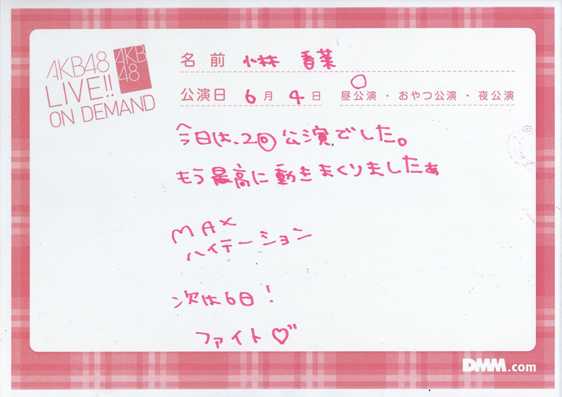 AKB48
LIVE!!
ON DEMAND
AKB
48
名前 小林 香菜
公演日 6月 4日 昼公演・おやつ公演・夜公演
今日は、2回公演でした。
もう最高に動きまくりましたぁ
MAX
ハイテーション
次は6日!
ファイト♡
DMM.com